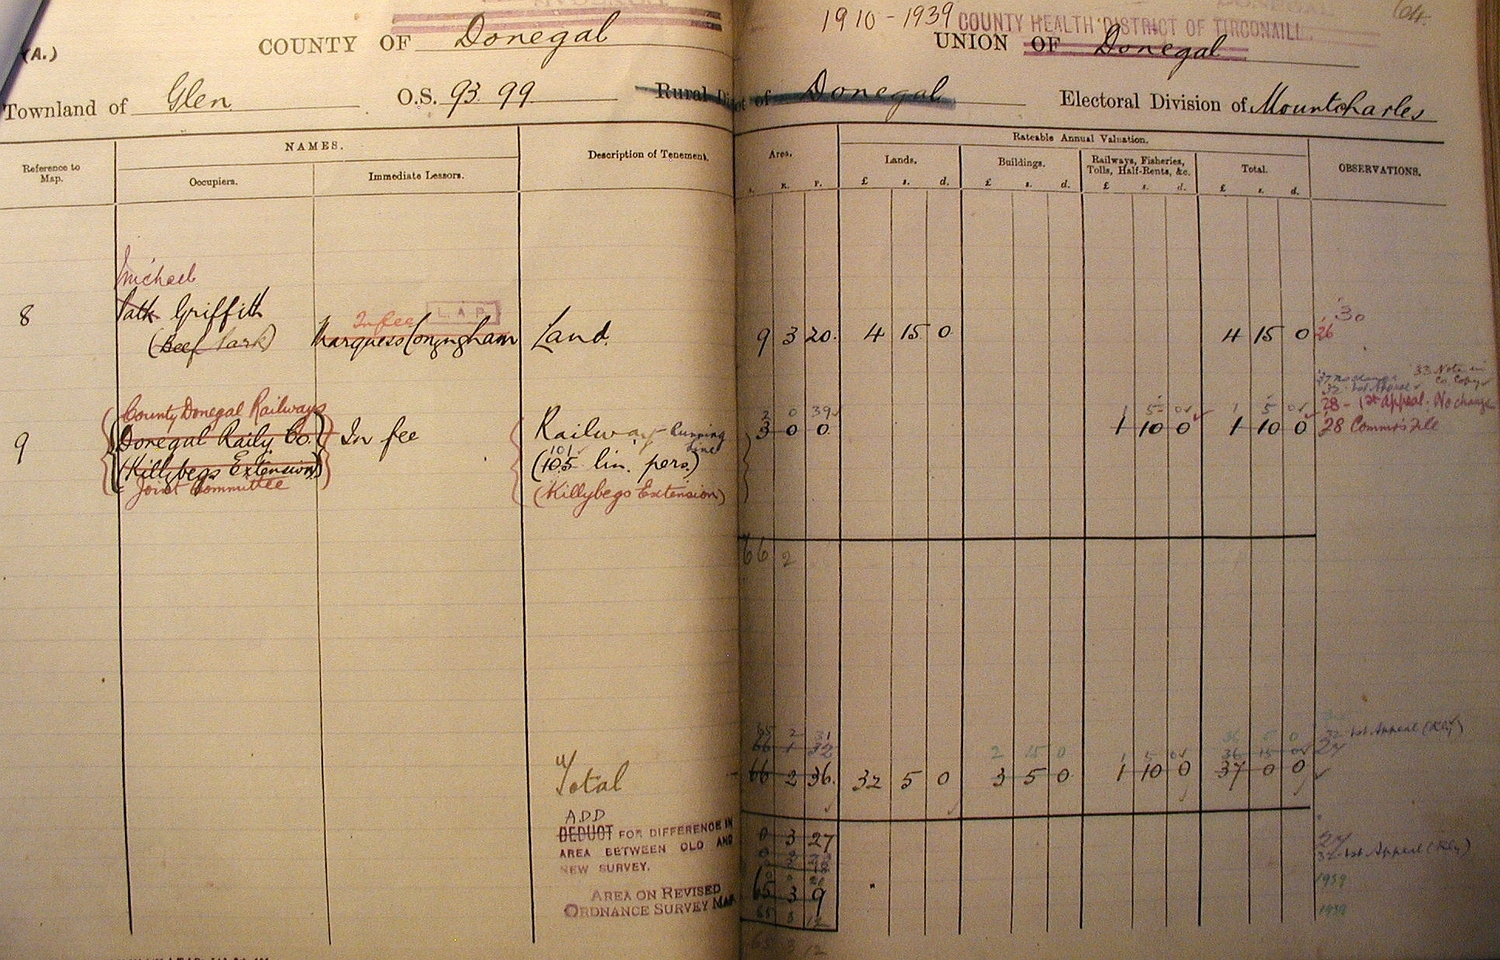 (A.)
COUNTY OF Donegal
1910 - 1939
COUNTY HEALTH DISTRICT OF TIRCONAILL
64.
UNION OF Donegal
Townland of Glen
O.S. 93. 99.
Rural District of Donegal
Electoral Division of Mountcharles
Reference to Map.
NAMES.
Occupiers.
Immediate Lessors.
Description of Tenement.
Area.
A. R. P.
Rateable Annual Valuation.
Lands.
£ s. d.
Buildings.
£ s. d.
Railways, Fisheries, Tolls, Half-Rents, &c.
£ s. d.
Total.
£ s. d.
OBSERVATIONS.
Michael
8 Patk Griffith
(Beef Park)
In fee L.A.P.
Marquess Conyngham
Land.
9 3 20. 4 15 0 4 15 0
30
26
County Donegal Railways
9 Donegal Raily Co.
(Killybegs Extension)
Joint Committee
In fee
Railway Running Line
101
(105 lin. pers.)
(Killybegs Extension)
2 0 39 1 5 0 1 5 0
3 0 0 1 10 0 1 10 0
33 Note in Co. Copy
28 - 1st appeal. No change
28 Commrs File
66 2
65 2 31
66 1 32 2 15 0 1 5 0 36 15 0
Total 66 2 36. 32 5 0 3 5 0 1 10 0 37 0 0
32 1st Appeal (Rly)
27
ADD
DEDUCT FOR DIFFERENCE IN
AREA BETWEEN OLD AND
NEW SURVEY.
0 3 27
27
32 1st Appeal (Rly)
AREA ON REVISED
ORDNANCE SURVEY MAP
65 3 9
1939
1939
65 3 12
65 3 12